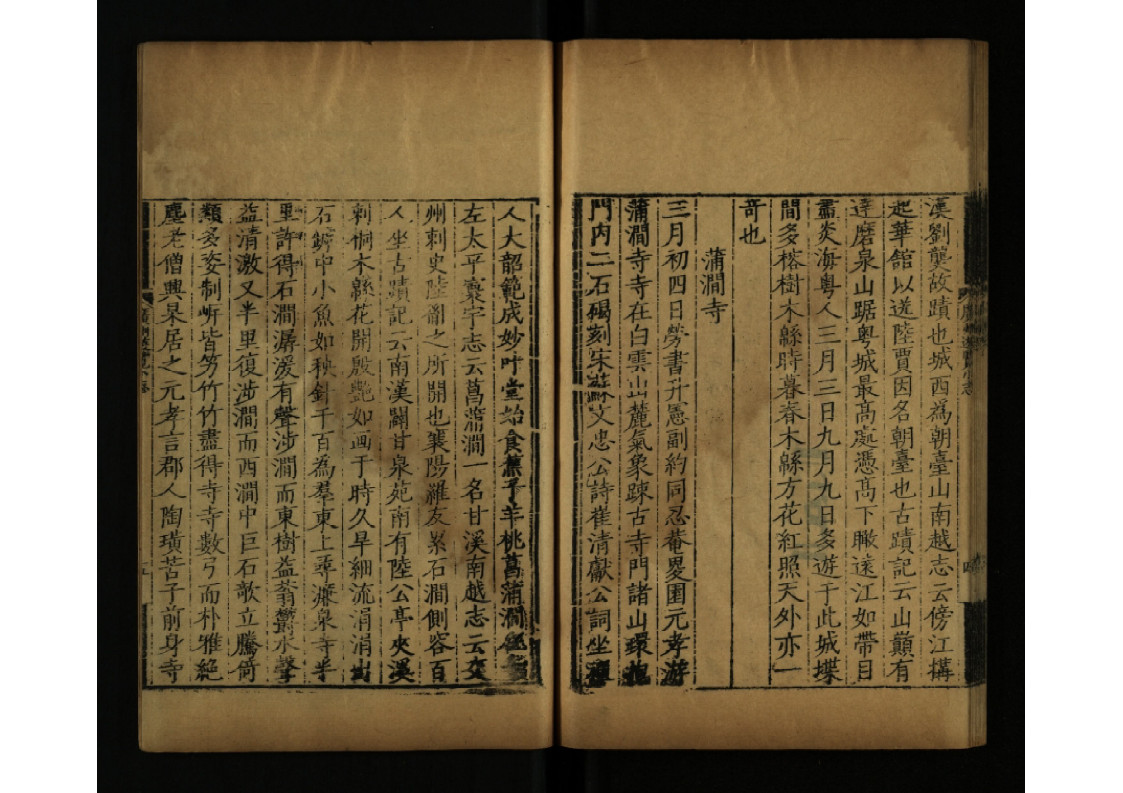 漢劉龑故蹟也城西為朝臺山南越志云傍江搆
起華館以送陸賈因名朝臺也古蹟記云山巔有
達磨泉山踞粵城最高處憑高下瞰遠江如帶目
盡炎海粵人三月三日九月九日多遊于此城堞
間多榕樹木緜時暮春木緜方花紅照天外亦一
奇也
蒲澗寺
三月初四日勞書升憲副約同忍菴畏園元孝游
蒲澗寺寺在白雲山麓氣象踈古寺門諸山環抱
門内二石碣刻宋蘇文忠公詩崔清獻公詞坐禪
人大韶範成妙叶堂始食蕉子羊桃菖蒲澗在
左太平寰宇志云菖蒲澗一名甘溪南越志云交
州刺史陸胤之所開也襄陽羅友累石澗側容百
人坐古蹟記云南漢闢甘泉苑南有陸公亭夾溪
刺桐木緜花開殷艷如画于時久旱細流涓涓出
石罅中小魚如秧針千百為羣東上乘濂泉寺半
里許得石澗潺湲有聲涉澗而東樹益蓊鬱水聲
益清激又半里復涉澗而西澗中巨石欹立騰倚
類多姿制㟁皆竻竹竹盡得寺寺數弓而朴雅絶
塵老僧興杲居之元孝言郡人陶璜苦子前身寺